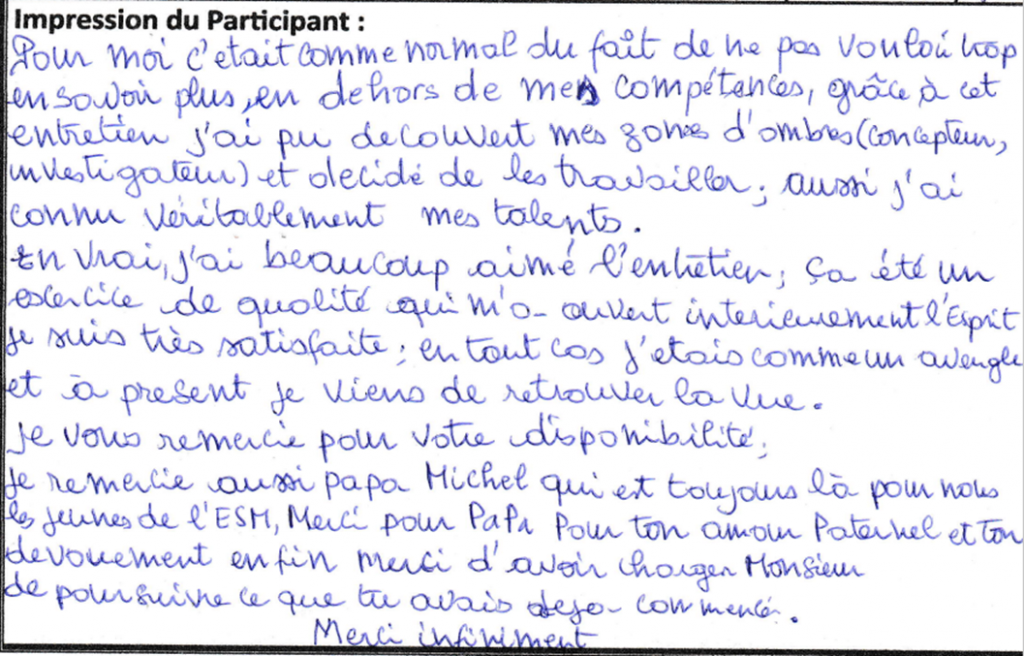 Impression du Participant :
Pour moi c'etait comme normal du faît de ne pas vouloir trop
en savoir plus, en dehors de mes compétences, grâce à cet
entretien j'ai pu decouvert mes zones d'ombres (concepteur,
investigateur) et decidé de les travailler ; aussi j'ai
connu véritablement mes talents.
En vrai, j'ai beaucoup aimé l'entretien ; ça été un
exercice de qualité qui m'a ouvert interieurement l'Esprit
je suis très satisfaite ; en tout cas j'etais comme un aveugle
et à present je viens de retrouver la vue.
Je vous remercie pour votre disponibilité ;
Je remercie aussi papa Michel qui est toujours là pour nous
les jeunes de l'ESM, Merci pour PaPa Pour ton amour Paternel et ton
devouement enfin merci d'avoir charger Monsieur
de poursuivre ce que tu avais dejà commencé.
Merci infiniment